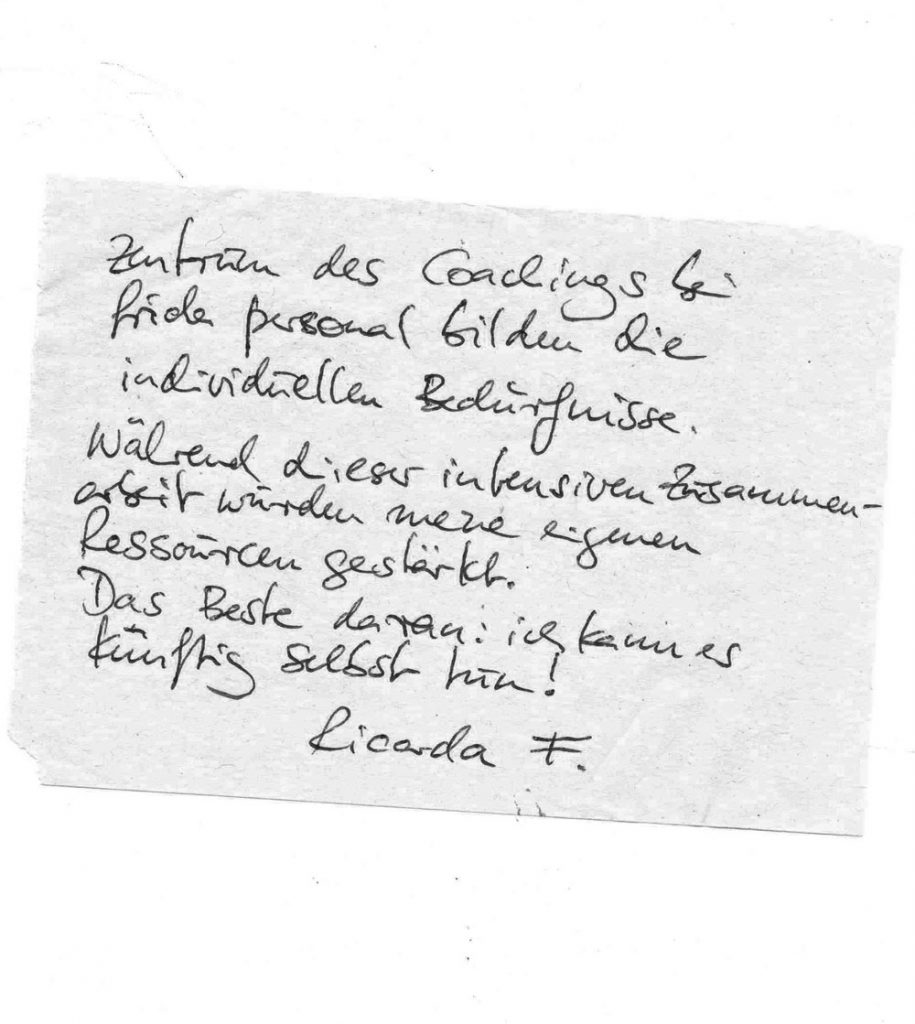 Zentrum des Coachings bei
frida personal bilden die
individuellen Bedürfnisse.
Während dieser intensiven Zusammen-
arbeit wurden meine eigenen
Ressourcen gestärkt.
Das Beste daran: ich kann es
künftig selbst tun!
Ricarda F.